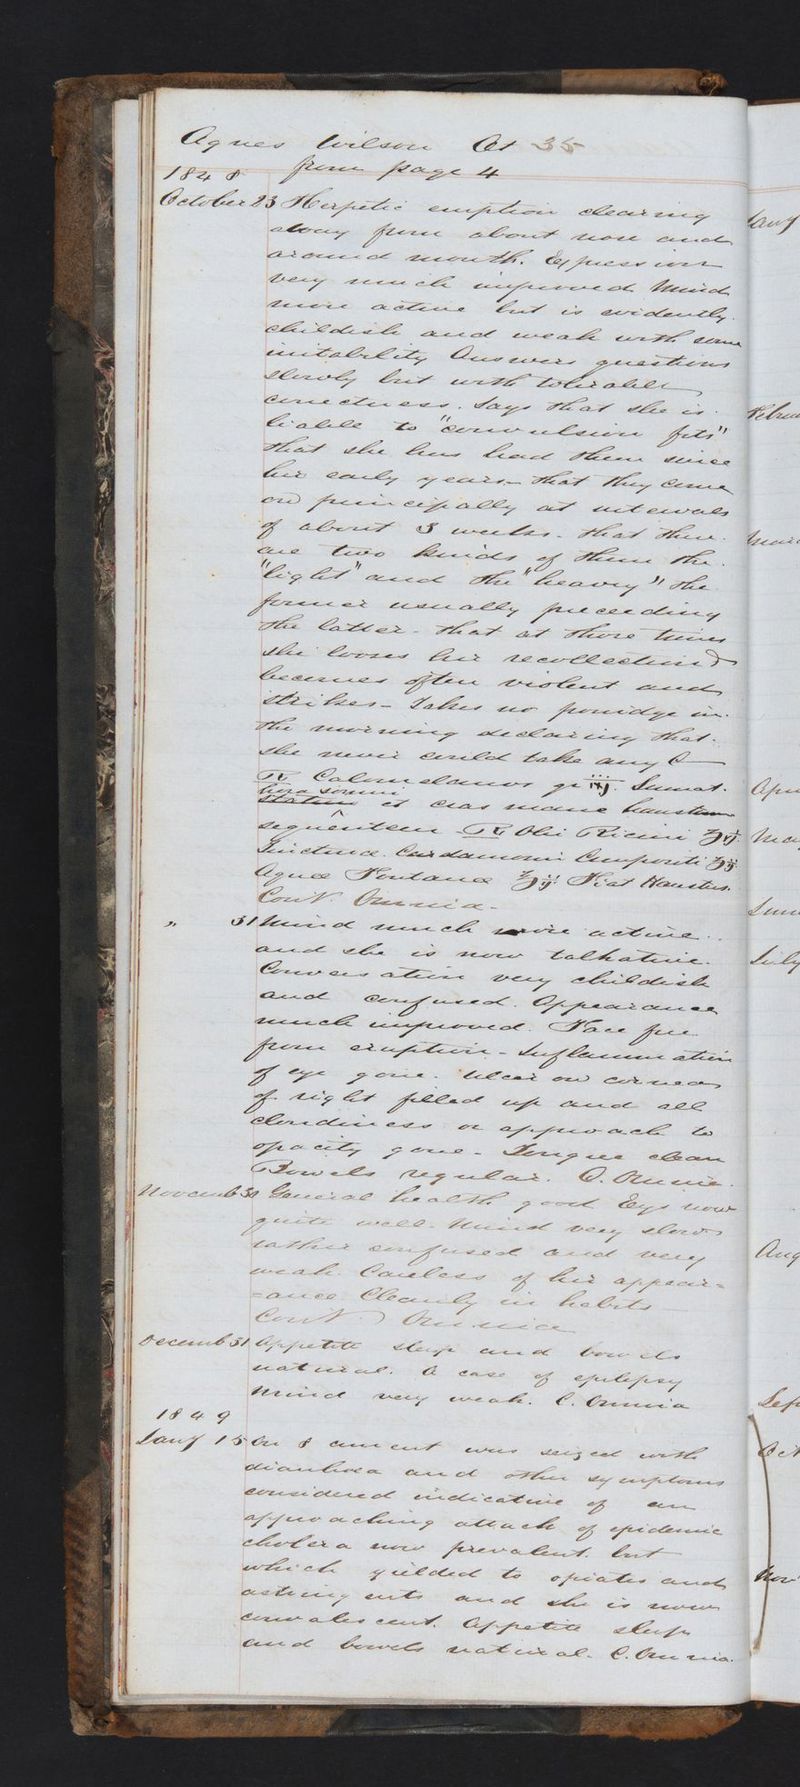 Agnes Wilson Æt 35
from page 4
1848
October 23 Herpetic eruption clearing
away from about nose and
around mouth. Expression
very much improved Mind
more active but is evidently
childish and weak with some
irritability Answers questions
slowly but with tolerable
correctness. Says that she is
liable to "convulsion fits"
that she has had them since
her early years - that they come
on principally at intervals
of about 3 weeks - that there
are two kinds of them the
"light" and the "heavy" the
former usually preceeding
the latter - that at those times
she looses her recollection &
becomes often violent and
strikes - Takes no porridge in
the morning declaring that
she never could take any
℞ Calomelanos gr Sumat
hora somni
statim et cras mane haustum
sequentem ℞ Olei Ricini
Tinctura Cardamomi Compositi ʒij
Aquæ Fontanæ ʒij Fiat Haustus
Cont. Omnia -
" 31 Mind much more active
and she is now talkative.
Conversation very childish
and confused. Appearance
much improved. Face free
from eruption - Inflammation
of eye gone. Ulcer on cornea
of right filled up and all
cloudiness or approach to
opacity gone - Tongue clean
Bowels regular. C. Omnia.
Novemb 30 General health good Eye now
quite well. Mind very slow
rather confused and very
weak. Careless of her appear-
-ance Cleanly in habits
Cont. Omnia
Decemb 31 Appetite sleep and bowels
natural. A case of epilepsy
Mind very weak. C. Omnia
1849
Jany 15 On 8 current was seized with
diarrhoea and other symptoms
considered indicative of an
approaching attack of epidemic
cholera now prevalent but
which yielded to opiates and
astringents and she is now
convalescent. Appetite sleep
and bowels natural. C. Omnia.
Jany
Aug
Nov